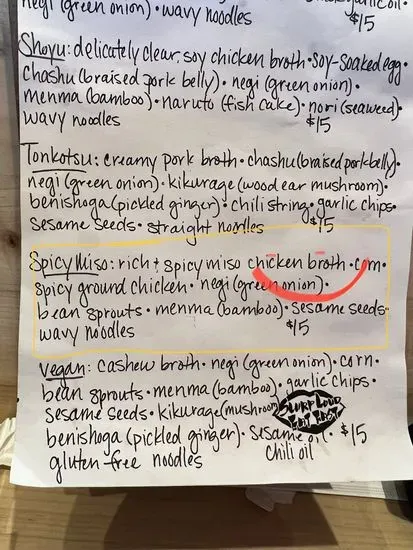 negi (green onion) • wavy noodles
$15
Shoyu: delicately clear, soy chicken broth • soy-soaked egg •
chashu (braised pork belly) • negi (green onion) •
menma (bamboo) • naruto (fish cake) • nori (seaweed) •
wavy noodles $15
Tonkotsu: creamy pork broth • chashu (braised pork belly) •
negi (green onion) • kikurage (wood ear mushroom) •
benishoga (pickled ginger) • chili string • garlic chips •
sesame seeds • straight noodles $15
Spicy Miso: rich + spicy miso chicken broth • corn •
spicy ground chicken • negi (green onion) •
bean sprouts • menma (bamboo) • sesame seeds
wavy noodles $15
Vegan: cashew broth • negi (green onion) • corn •
bean sprouts • menma (bamboo) • garlic chips •
sesame seeds • kikurage (mushroom)
SLURP LOUD
benishoga (pickled ginger) • sesame oil • $15
gluten-free noodles chili oil